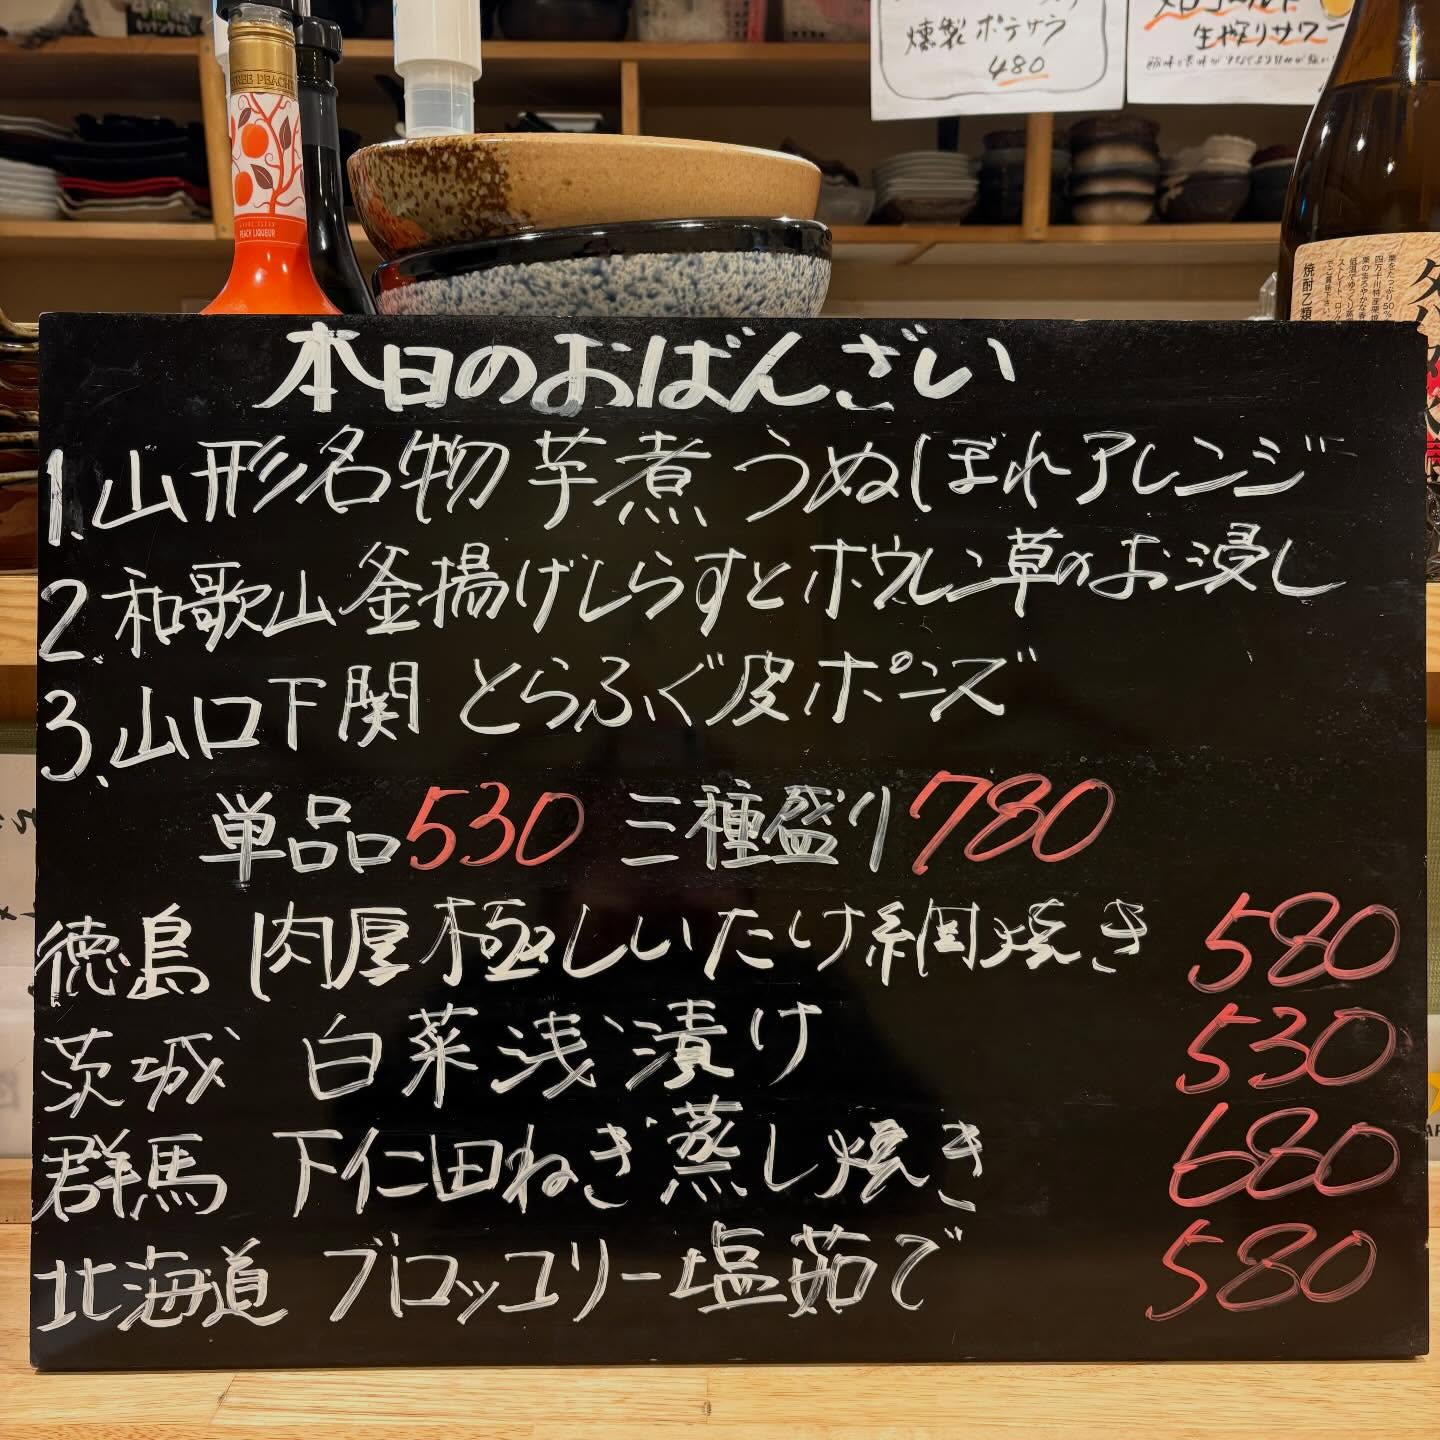 燻製ポテサラ
480
生搾りサワー
TREE PEACH
PEACH LIQUEUR
焼酎乙類
本日のおばんざい
1.山形名物 芋煮 うぬぼれアレンジ
2.和歌山 釜揚げしらすとホウレン草のお浸し
3.山口下関 とらふぐ皮ポン酢
単品530 三種盛り780
徳島 肉厚極しいたけ網焼き 580
茨城 白菜浅漬け 530
群馬 下仁田ねぎ蒸し焼き 680
北海道 ブロッコリー塩茹で 580